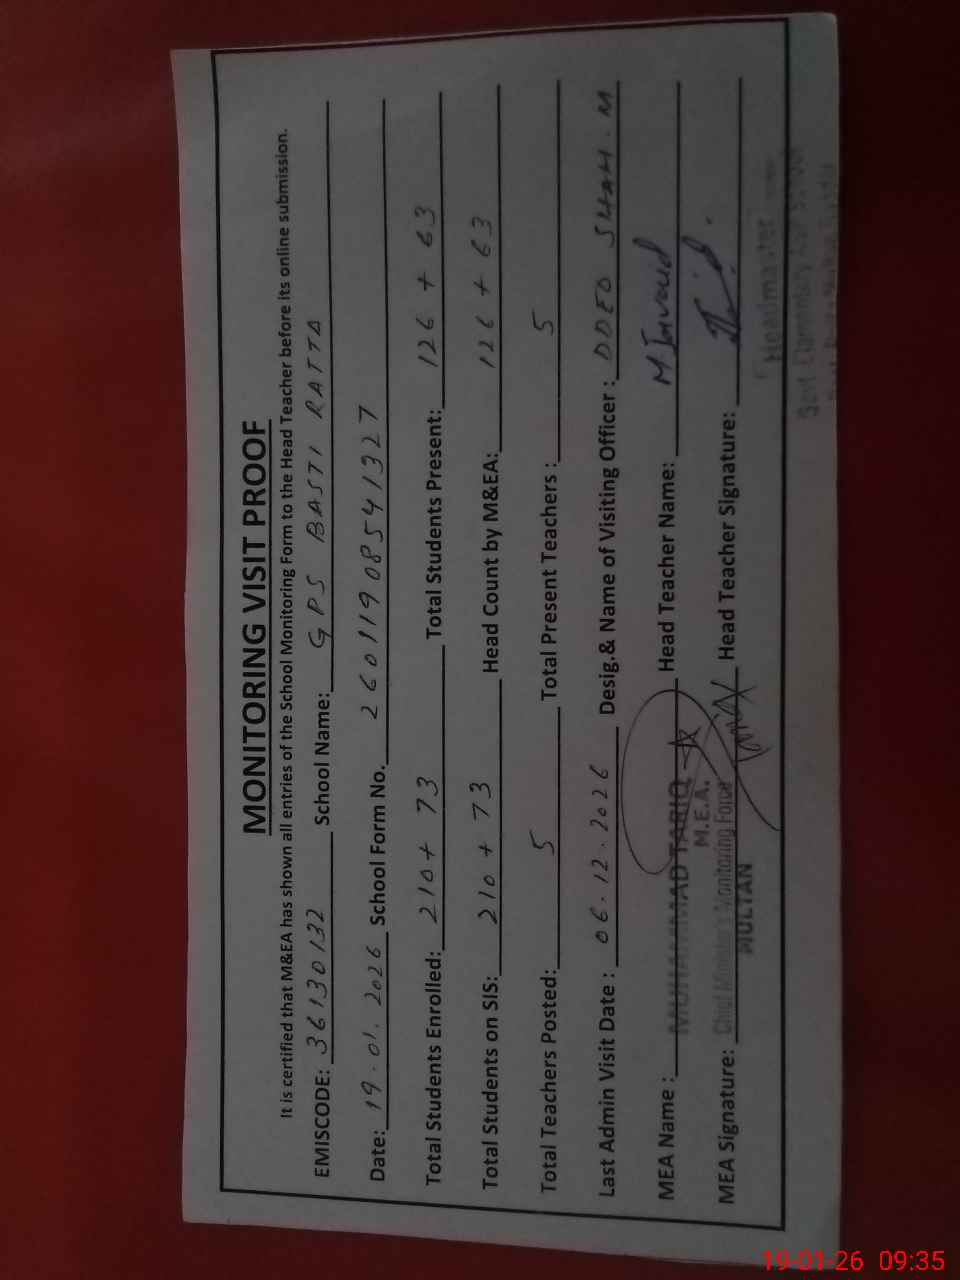 MONITORING VISIT PROOF
It is certified that M&EA has shown all entries of the School Monitoring Form to the Head Teacher before its online submission.
EMISCODE: 36130132 School Name: GPS BASTI RATTA
Date: 19.01.2026 School Form No. 26011908541327
Total Students Enrolled: 210 + 73 Total Students Present: 126 + 63
Total Students on SIS: 210 + 73 Head Count by M&EA: 126 + 63
Total Teachers Posted: 5 Total Present Teachers : 5
Last Admin Visit Date : 06.12.2026 Desig.& Name of Visiting Officer : DDEO SHAH.M
MEA Name : MUHAMMAD TARIQ Head Teacher Name: M Javaid
M.E.A.
MEA Signature: Chief Minister's Monitoring Force Head Teacher Signature:
MULTAN
Headmaster
Govt. Elementary School
19-01-26 09:35